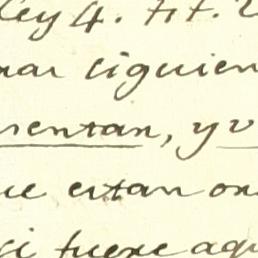 Ley 4. tit. 2
nar siguien
sentan, y v
ue estan on
si fuere aqu